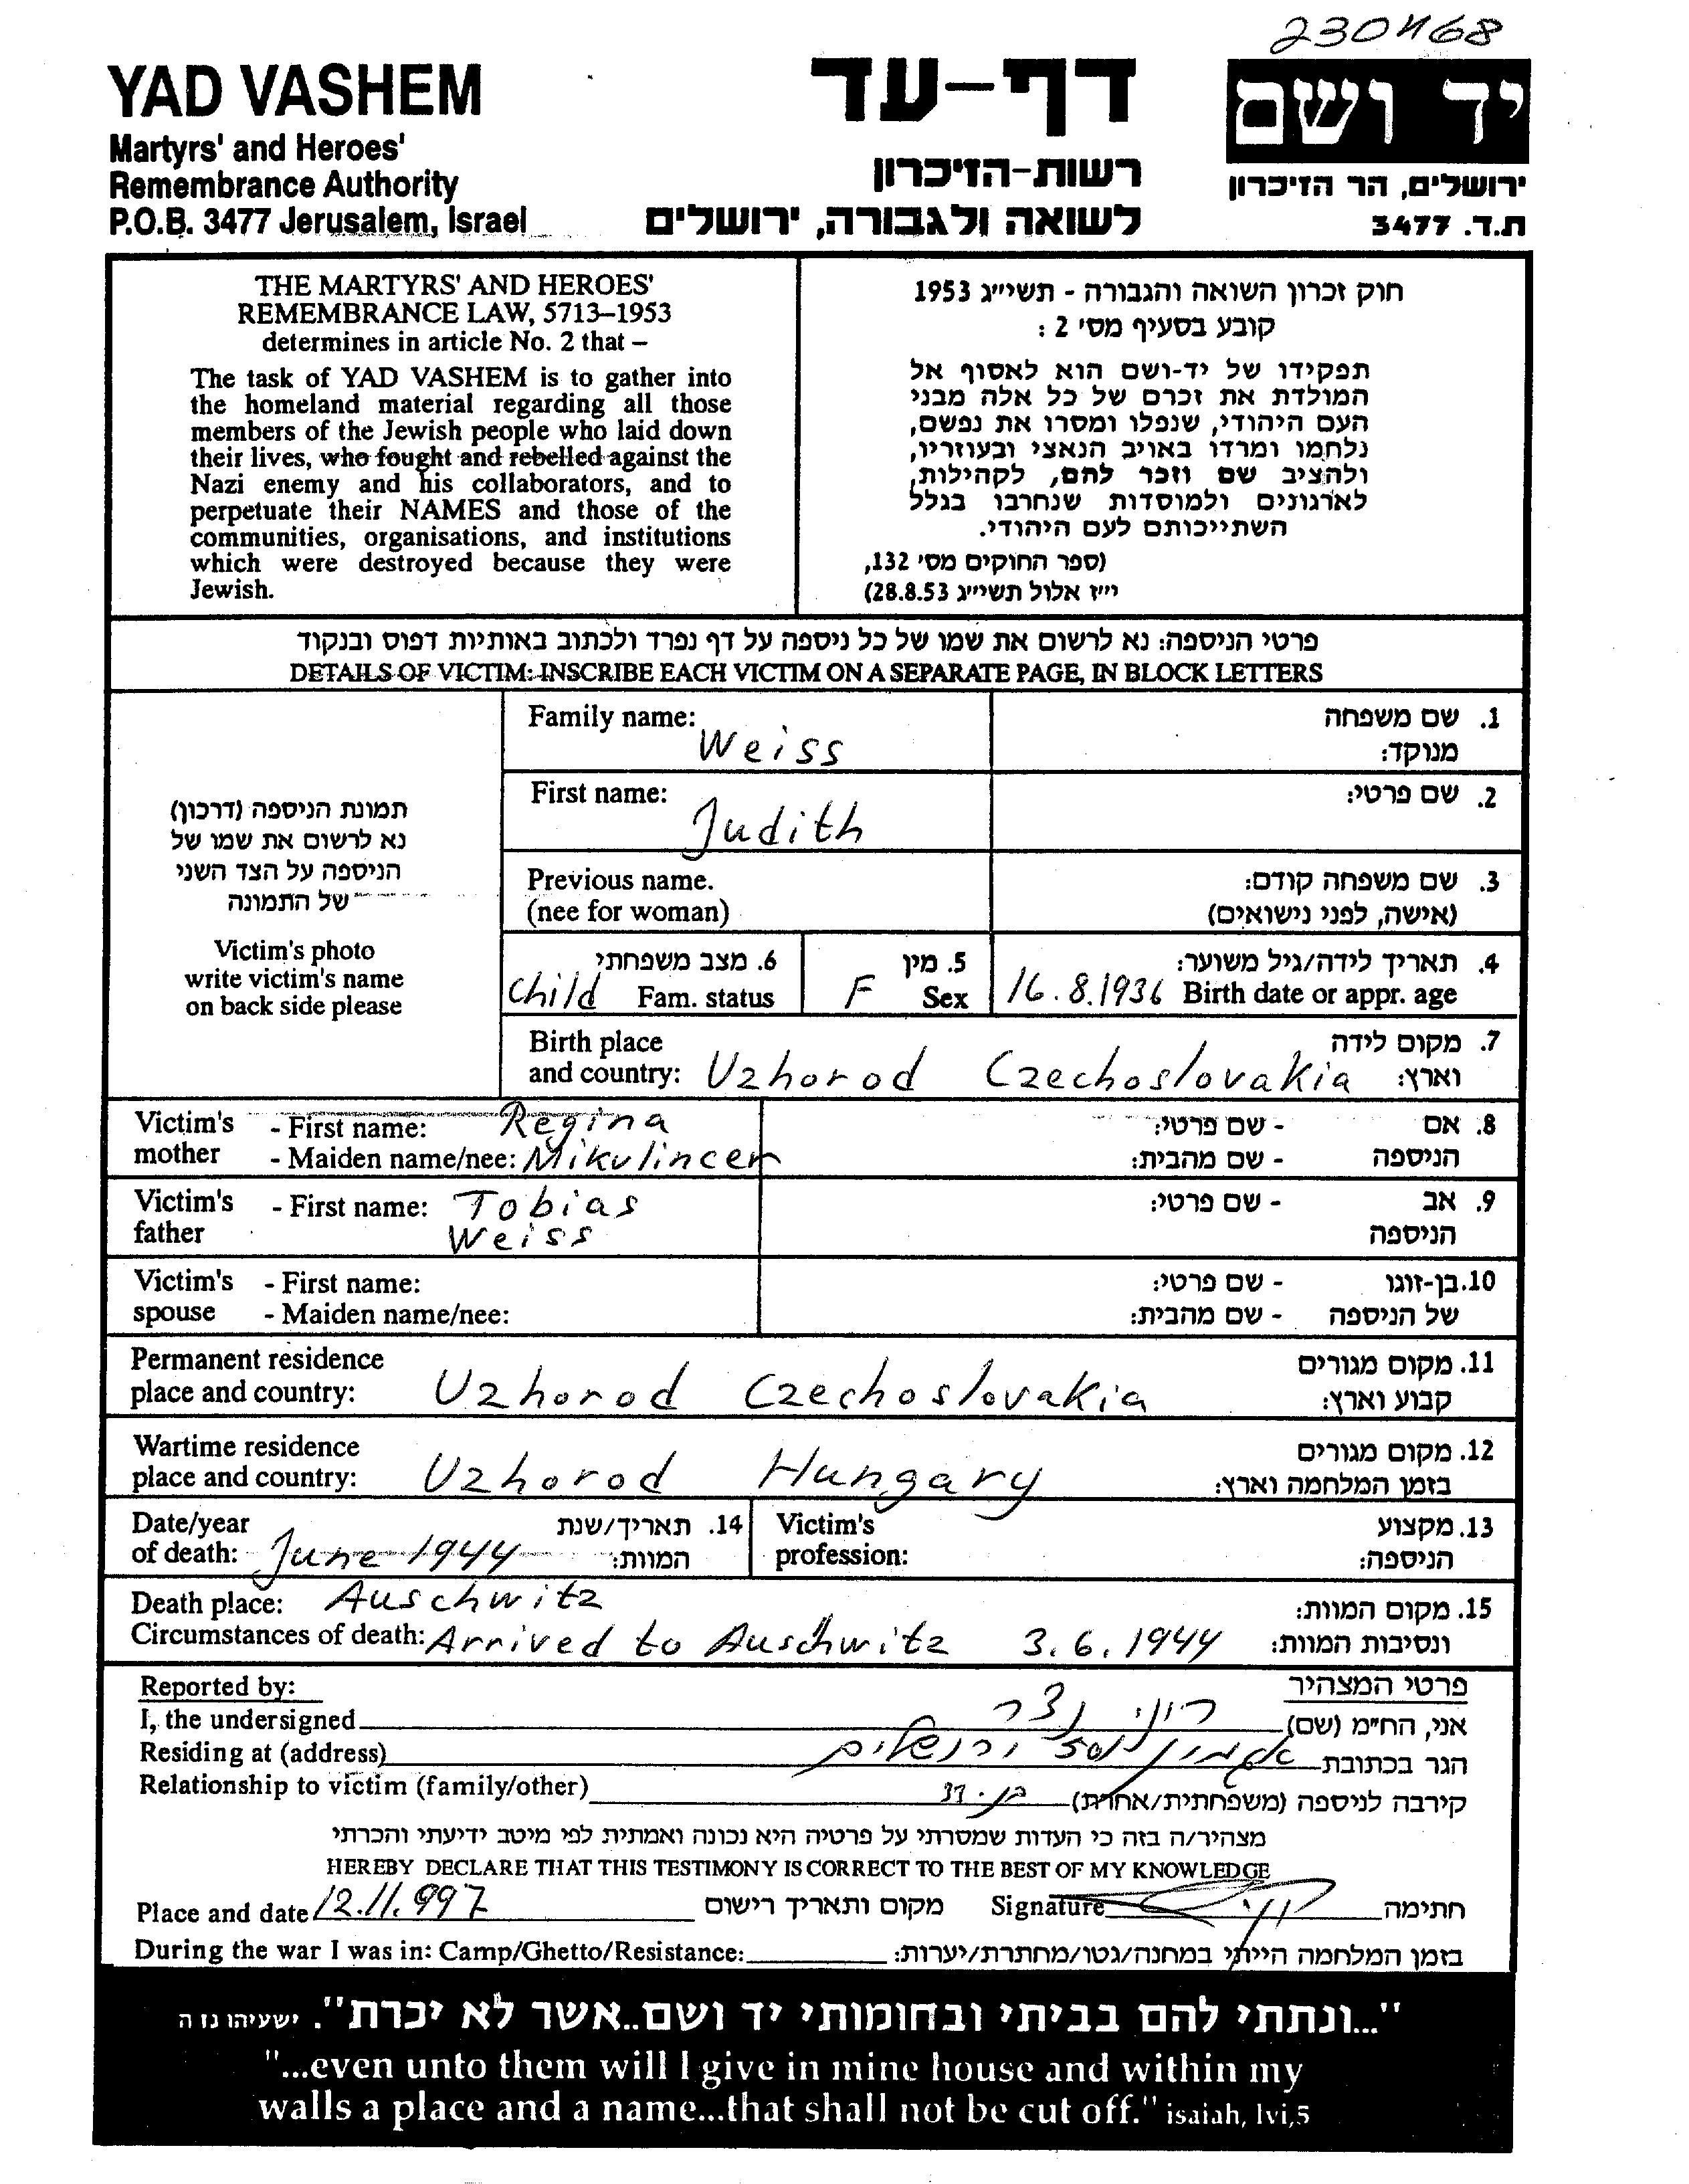 230468
YAD VASHEM
Martyrs' and Heroes'
Remembrance Authority
P.O.B. 3477 Jerusalem, Israel
דף-עד
רשות-הזיכרון
לשואה ולגבורה, ירושלים
יד ושם
ירושלים, הר הזיכרון
ת.ד. 3477
THE MARTYRS' AND HEROES'
REMEMBRANCE LAW, 5713–1953
determines in article No. 2 that –
The task of YAD VASHEM is to gather into
the homeland material regarding all those
members of the Jewish people who laid down
their lives, who fought and rebelled against the
Nazi enemy and his collaborators, and to
perpetuate their NAMES and those of the
communities, organisations, and institutions
which were destroyed because they were
Jewish.
חוק זכרון השואה והגבורה - תשי״ג 1953
קובע בסעיף מס' 2 :
תפקידו של יד-ושם הוא לאסוף אל
המולדת את זכרם של כל אלה מבני
העם היהודי, שנפלו ומסרו את נפשם,
נלחמו ומרדו באויב הנאצי ובעוזריו,
ולהציב שם וזכר להם, לקהילות,
לארגונים ולמוסדות שנחרבו בגלל
השתייכותם לעם היהודי.
(ספר החוקים מס' 132,
י״ז אלול תשי״ג 28.8.53)
פרטי הניספה: נא לרשום את שמו של כל ניספה על דף נפרד ולכתוב באותיות דפוס ובנקוד
DETAILS OF VICTIM: INSCRIBE EACH VICTIM ON A SEPARATE PAGE, IN BLOCK LETTERS
תמונת הניספה (דרכון)
נא לרשום את שמו של
הניספה על הצד השני
של התמונה
Victim's photo
write victim's name
on back side please
Family name: Weiss
1. שם משפחה
מנוקד:
First name: Judith
2. שם פרטי:
Previous name.
(nee for woman)
3. שם משפחה קודם:
(אישה, לפני נישואים)
6. מצב משפחתי
child Fam. status
5. מין
F Sex
4. תאריך לידה/גיל משוער:
16.8.1936 Birth date or appr. age
Birth place
and country: Uzhorod Czechoslovakia
7. מקום לידה
וארץ:
Victim's mother - First name: Regina
- Maiden name/nee: Mikulincer
8. אם הניספה - שם פרטי:
- שם מהבית:
Victim's father - First name: Tobias
Weiss
9. אב הניספה - שם פרטי:
Victim's spouse - First name:
- Maiden name/nee:
10. בן-זוגו של הניספה - שם פרטי:
- שם מהבית:
Permanent residence
place and country: Uzhorod Czechoslovakia
11. מקום מגורים
קבוע וארץ:
Wartime residence
place and country: Uzhorod Hungary
12. מקום מגורים
בזמן המלחמה וארץ:
Date/year
of death: June 1944
14. תאריך/שנת
המוות:
Victim's
profession:
13. מקצוע
הניספה:
Death place: Auschwitz
15. מקום המוות:
Circumstances of death: Arrived to Auschwitz 3.6.1944
ונסיבות המוות:
Reported by:
פרטי המצהיר
I, the undersigned
אני, הח״מ (שם) רוני נצר
Residing at (address)
הגר בכתובת ירושלים
Relationship to victim (family/other)
קירבה לניספה (משפחתית/אחרת) בן-דוד
מצהיר/ה בזה כי העדות שמסרתי על פרטיה היא נכונה ואמתית לפי מיטב ידיעתי והכרתי
HEREBY DECLARE THAT THIS TESTIMONY IS CORRECT TO THE BEST OF MY KNOWLEDGE
Place and date 12.11.997 מקום ותאריך רישום Signature חתימה
During the war I was in: Camp/Ghetto/Resistance: בזמן המלחמה הייתי במחנה/גטו/מחתרת/יערות:
"...ונתתי להם בביתי ובחומותי יד ושם..אשר לא יכרת". ישעיהו נז ה
"...even unto them will I give in mine house and within my
walls a place and a name...that shall not be cut off." isaiah, lvi,5